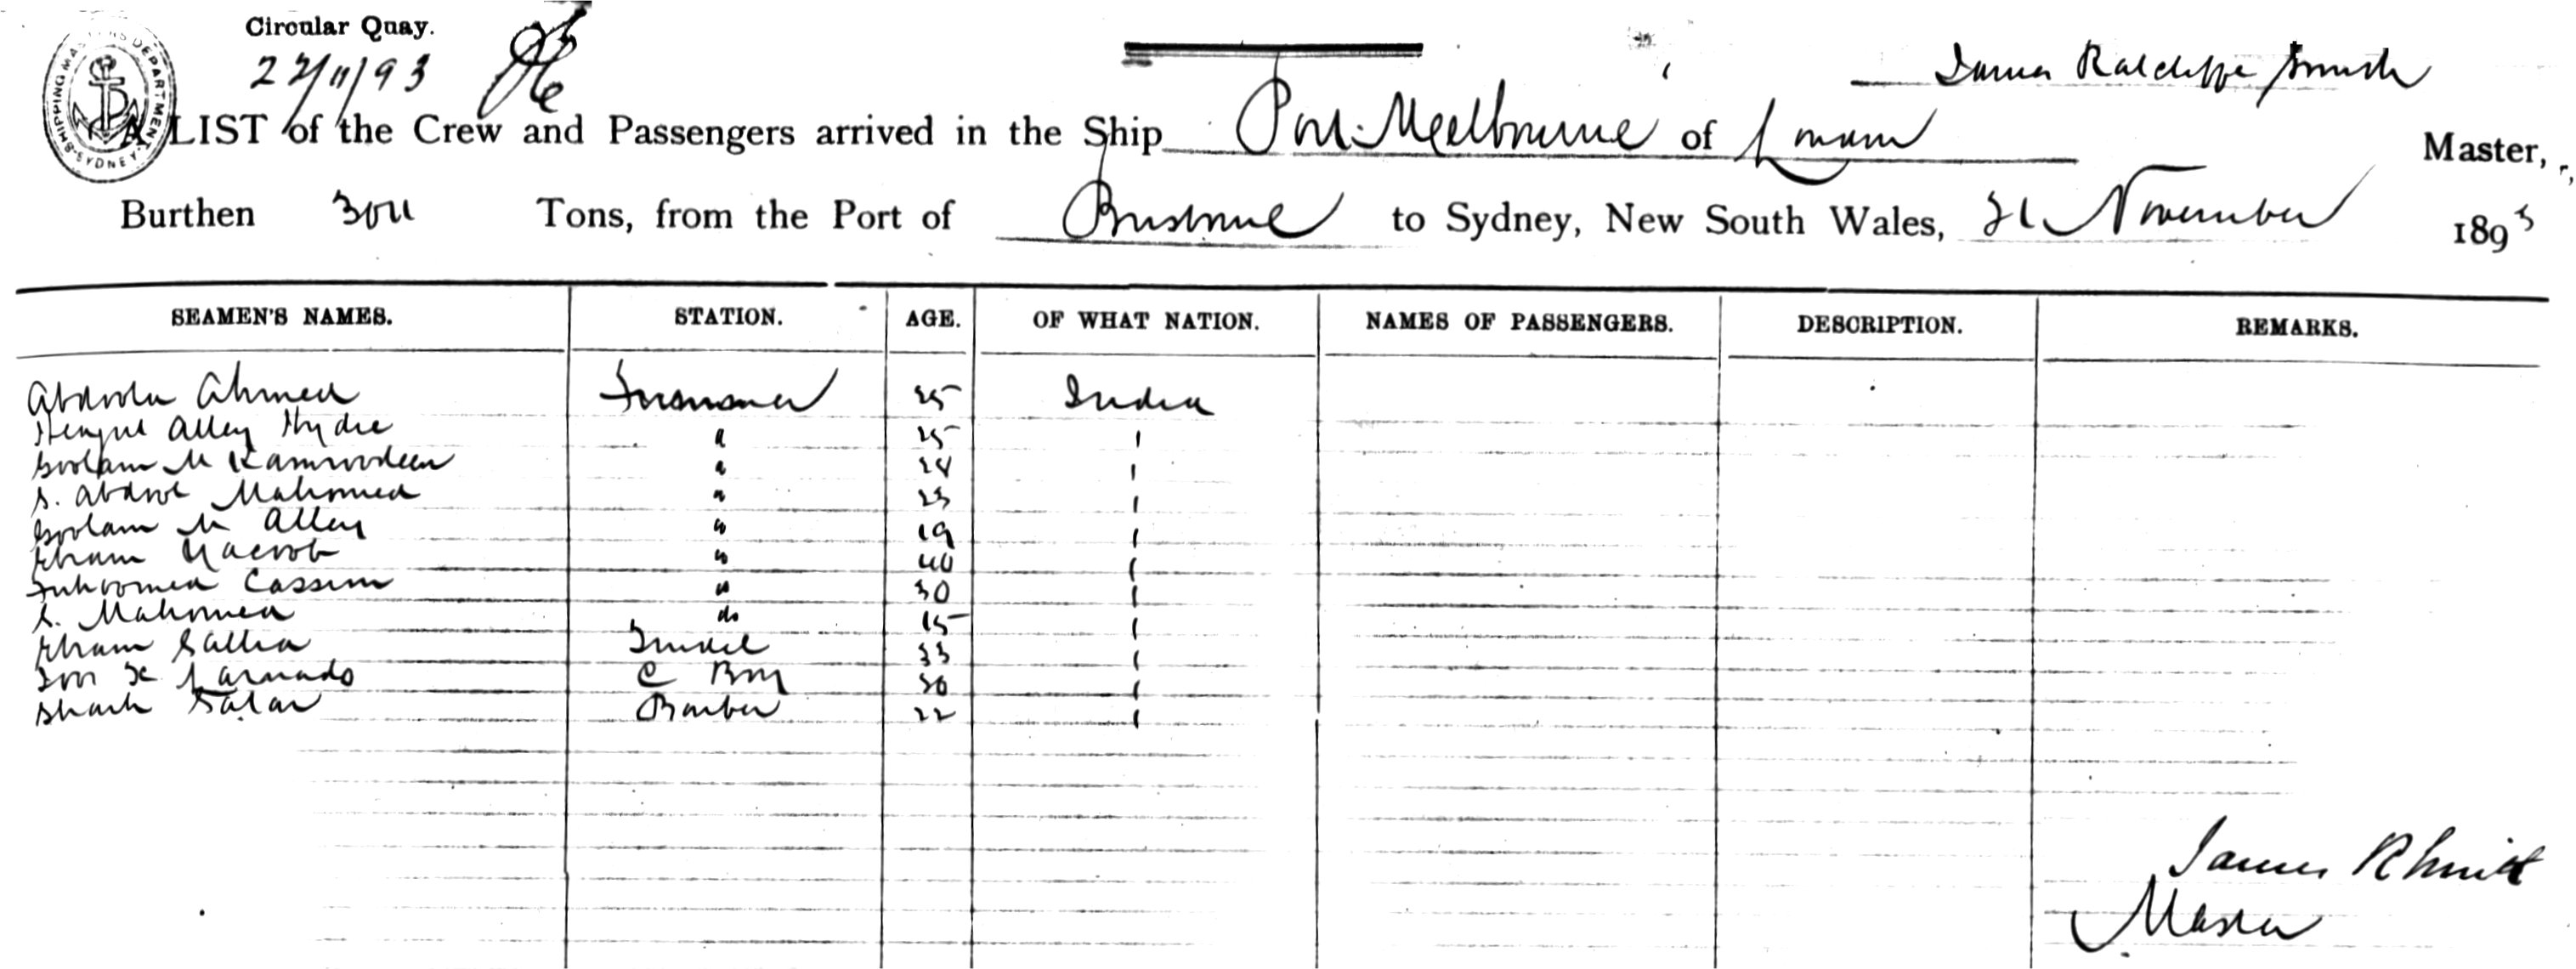 Circular Quay.
22/11/93
SHIPPING MASTERS DEPARTMENT SYDNEY
James Ratcliffe Smith
A LIST of the Crew and Passengers arrived in the Ship Port Melbourne of London Master,
Burthen Tons, from the Port of Brisbane to Sydney, New South Wales, 21 November 1893
SEAMEN'S NAMES. STATION. AGE. OF WHAT NATION. NAMES OF PASSENGERS. DESCRIPTION. REMARKS.
Abdoola Ahmed Fireman 25 India
Alley Hydre " 25 "
Goolam M Kamroodeen " 24 "
S. Abdool Mahomed " 23 "
Goolam M Alley " 19 "
Ebram Yacoob " 40 "
Cassim " 30 "
S. Mahomed do 15 "
Ebram 33 "
C Boy 30 "
Shaik Barber 22 "
James R Smith
Master